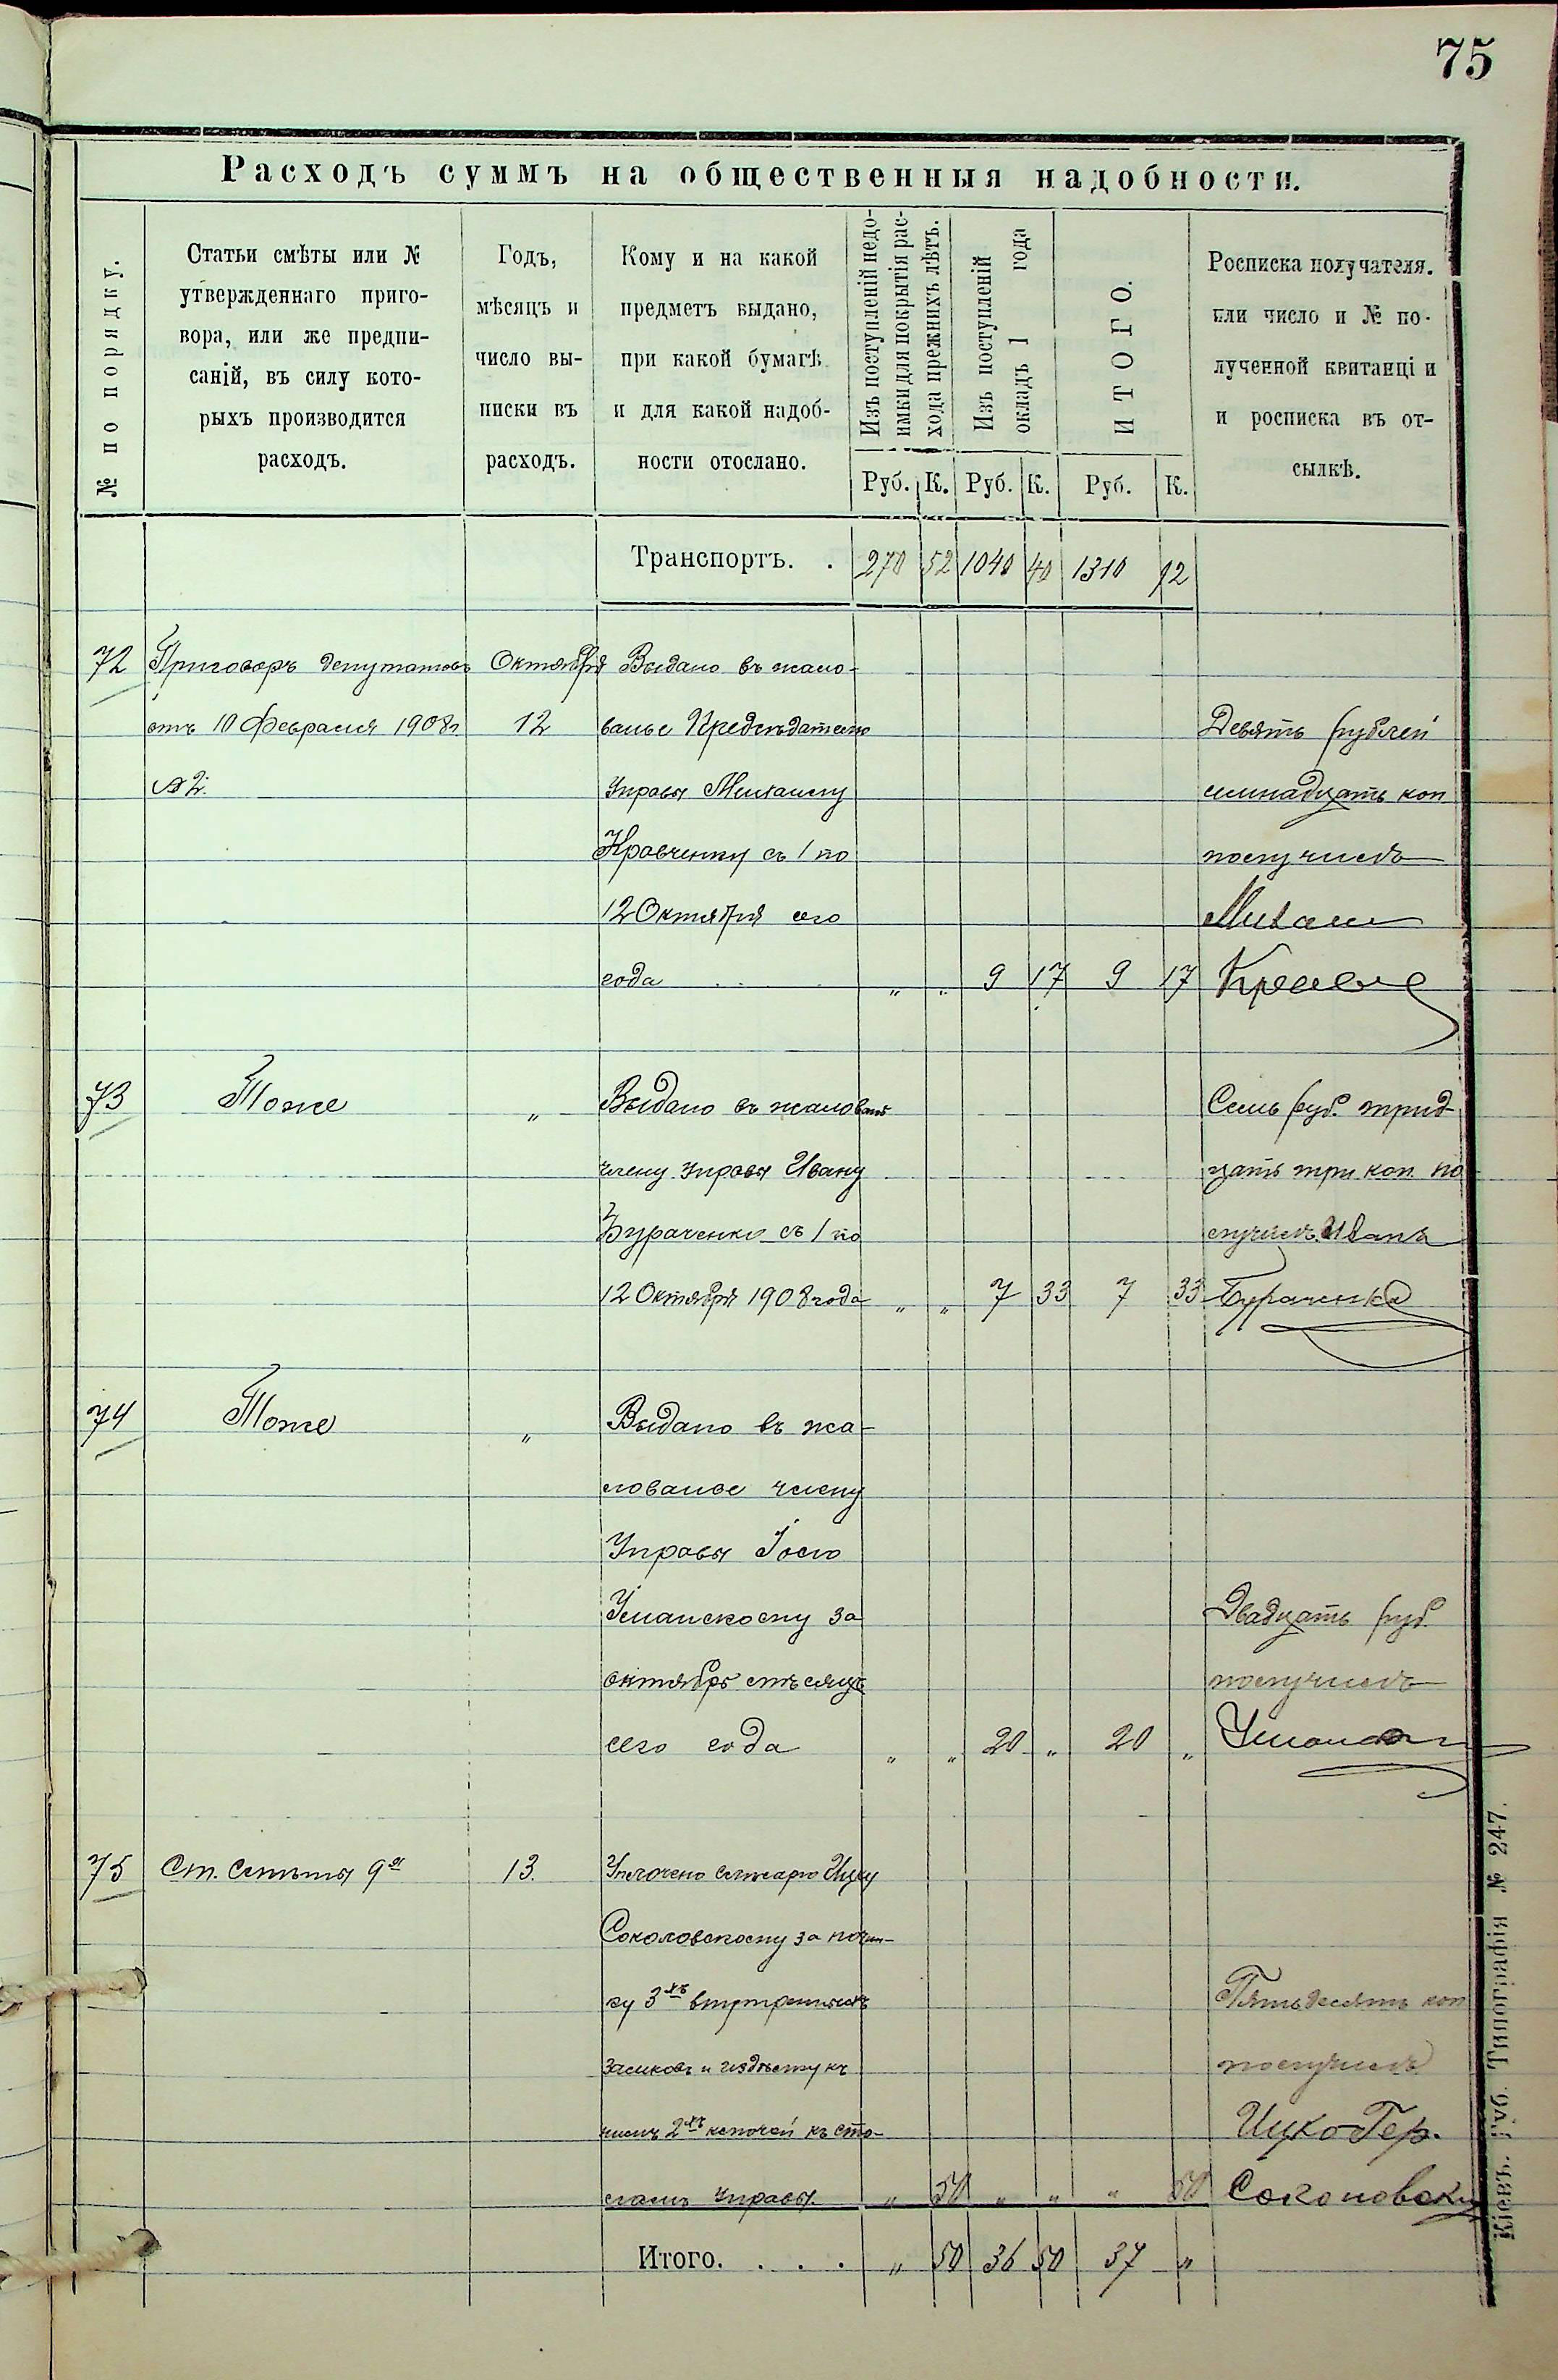 75
Расходъ суммъ на общественныя надобности.
№ по порядку.
Статьи смѣты или №
утвержденнаго приго-
вора, или же предпи-
саній, въ силу кото-
рыхъ производится
расходъ.
Годъ,
мѣсяцъ и
число вы-
писки въ
расходъ.
Кому и на какой
предметъ выдано,
при какой бумагѣ
и для какой надоб-
ности отослано.
Изъ поступленій недо-
имки для покрытія рас-
хода прежнихъ лѣтъ.
Изъ поступленій
окладъ 1 года
ИТОГО.
Росписка получателя.
или число и № по-
лученной квитанціи
и росписка въ от-
сылкѣ.
Руб. К. Руб. К. Руб. К.
Транспортъ. . 270 52 1040 40 1310 92
72 Приговоръ депутатовъ Октября Выдано въ жало-
отъ 10 Февраля 1908г. 12 ванье Предсѣдателю Девять рублей
№ 2. Управы Михаилу семнадцать коп
Кравченку съ 1 по получилъ
12 Октября сего Михаилъ
года . . „ „ 9 17 9 17
73 Тоже „ Выдано въ жалованье Семь руб. трид-
члену управы Ивану цать три коп. по
Бураченко съ 1 по лучилъ Иванъ
12 Октября 1908 года „ „ 7 33 7 33 Бураченко
74 Тоже „ Выдано въ жа-
лованье члену
Управы Іосю
Уманскому за Двадцать руб.
октябрь мѣсяцъ получилъ
сего года „ „ 20 „ 20 „ Уманскій
75 Ст. Смѣты 9я 13. Уплочено слесарю Ицку
Соколовскому за почин-
ку 3хъ внутреннихъ Пятьдесятъ коп
замковъ и получилъ
2хъ ключей къ сто- Ицко Гер.
ламъ управы. „ 50 „ „ „ 50 Соколовскій
Итого. . . . „ 50 36 50 37 „
Кіевъ. Губ. Типографія № 247.